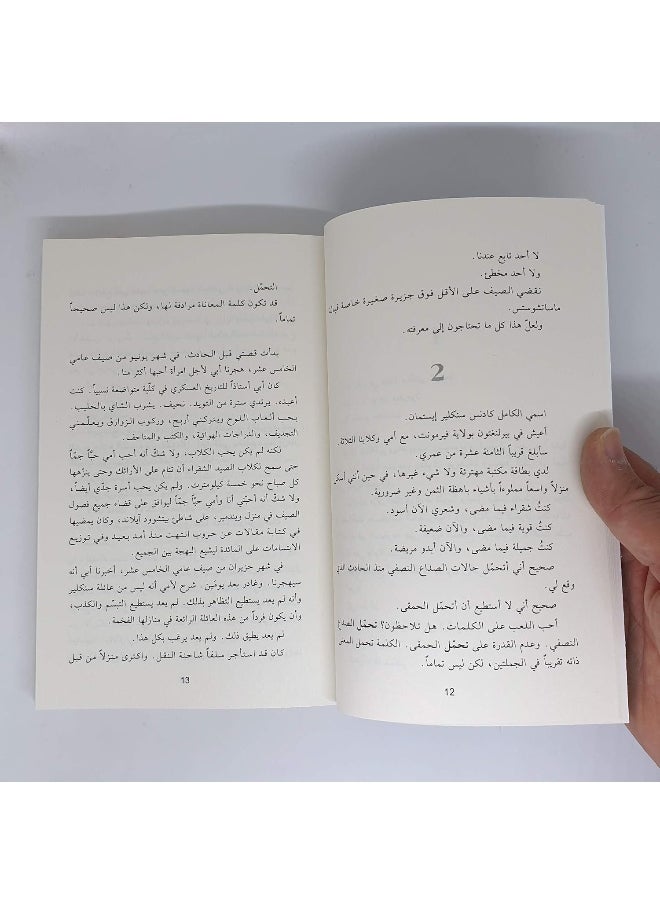 لا أحد تابع عندنا.
ولا أحد مخطئ.
نقضي الصيف على الأقل فوق جزيرة صغيرة خاصة قبالة
ماساتشوستس.
ولعلّ هذا كل ما تحتاجون إلى معرفته.
2
اسمي الكامل كادنس سنكلير إيستمان.
أعيش في بيرلنغتون بولاية فيرمونت، مع أمي وكلابنا الثلاثة.
سأبلغ قريباً الثامنة عشرة من عمري.
لدي بطاقة مكتبة مهترئة ولا شيء غيرها، في حين أني أسكن
منزلاً واسعاً مملوءاً بأشياء باهظة الثمن وغير ضرورية.
كنتُ شقراء فيما مضى، وشعري الآن أسود.
كنتُ قوية فيما مضى، والآن ضعيفة.
كنتُ جميلة فيما مضى، والآن أبدو مريضة.
صحيح أني أتحمّل حالات الصداع النصفي منذ الحادث الذي
وقع لي.
صحيح أني لا أستطيع أن أتحمل الحمقى.
أحب اللعب على الكلمات. هل تلاحظون؟ تحمّل الصداع
النصفي. وعدم القدرة على تحمّل الحمقى. الكلمة تحمل المعنى
ذاته تقريباً في الجملتين، لكن ليس تماماً.
12
التحمّل.
قد تكون كلمة المعاناة مرادفة لها، ولكن هذا ليس صحيحاً
تماماً.
بدأت قصتي قبل الحادث. في شهر يونيو من صيف عامي
الخامس عشر، هجرنا أبي لأجل امرأة أحبها أكثر منا.
كان أبي أستاذاً للتاريخ العسكري في كلّية متواضعة نسبياً. كنت
أعبده. يرتدي سترة من التويد. نحيف. يشرب الشاي بالحليب.
يحب ألعاب اللوح ويتركني أربح، وركوب الزوارق ويعلّمني
التجديف، والدراجات الهوائية، والكتب والمتاحف.
لكنه لم يكن يحب الكلاب، ولا شكّ أنه أحب أمي حبّاً جمّاً
حتى سمح لكلاب الصيد الشقراء أن تنام على الأرائك وحتى ينزّهها
كل صباح نحو خمسة كيلومترت. ولم يكن يحب أسرة جدّي أيضاً،
ولا شكّ أنه أحبّني أنا وأمي حبّاً جمّاً ليوافق على قضاء جميع فصول
الصيف في منزل ويندمير، على شاطئ بيتشوود آيلاند، وكان يمضيها
في كتابة مقالات عن حروب انتهت منذ أمد بعيد وفي توزيع
الابتسامات على المائدة ليشيع البهجة بين الجميع.
في شهر حزيران من صيف عامي الخامس عشر، أخبرنا أبي أنه
سيهجرنا. وغادر بعد يومين. شرح لأمي أنه ليس من عائلة سنكلير
وأنه لم يعد يستطيع التظاهر بذلك. لم يعد يستطيع التبسّم والكذب،
وأن يكون فرداً من هذه العائلة الرائعة في منازلها الفخمة.
لم يعد يطيق ذلك. ولم يعد يرغب بكل هذا.
كان قد استأجر سلفاً شاحنة النقل. واكترى منزلاً من قبل
13